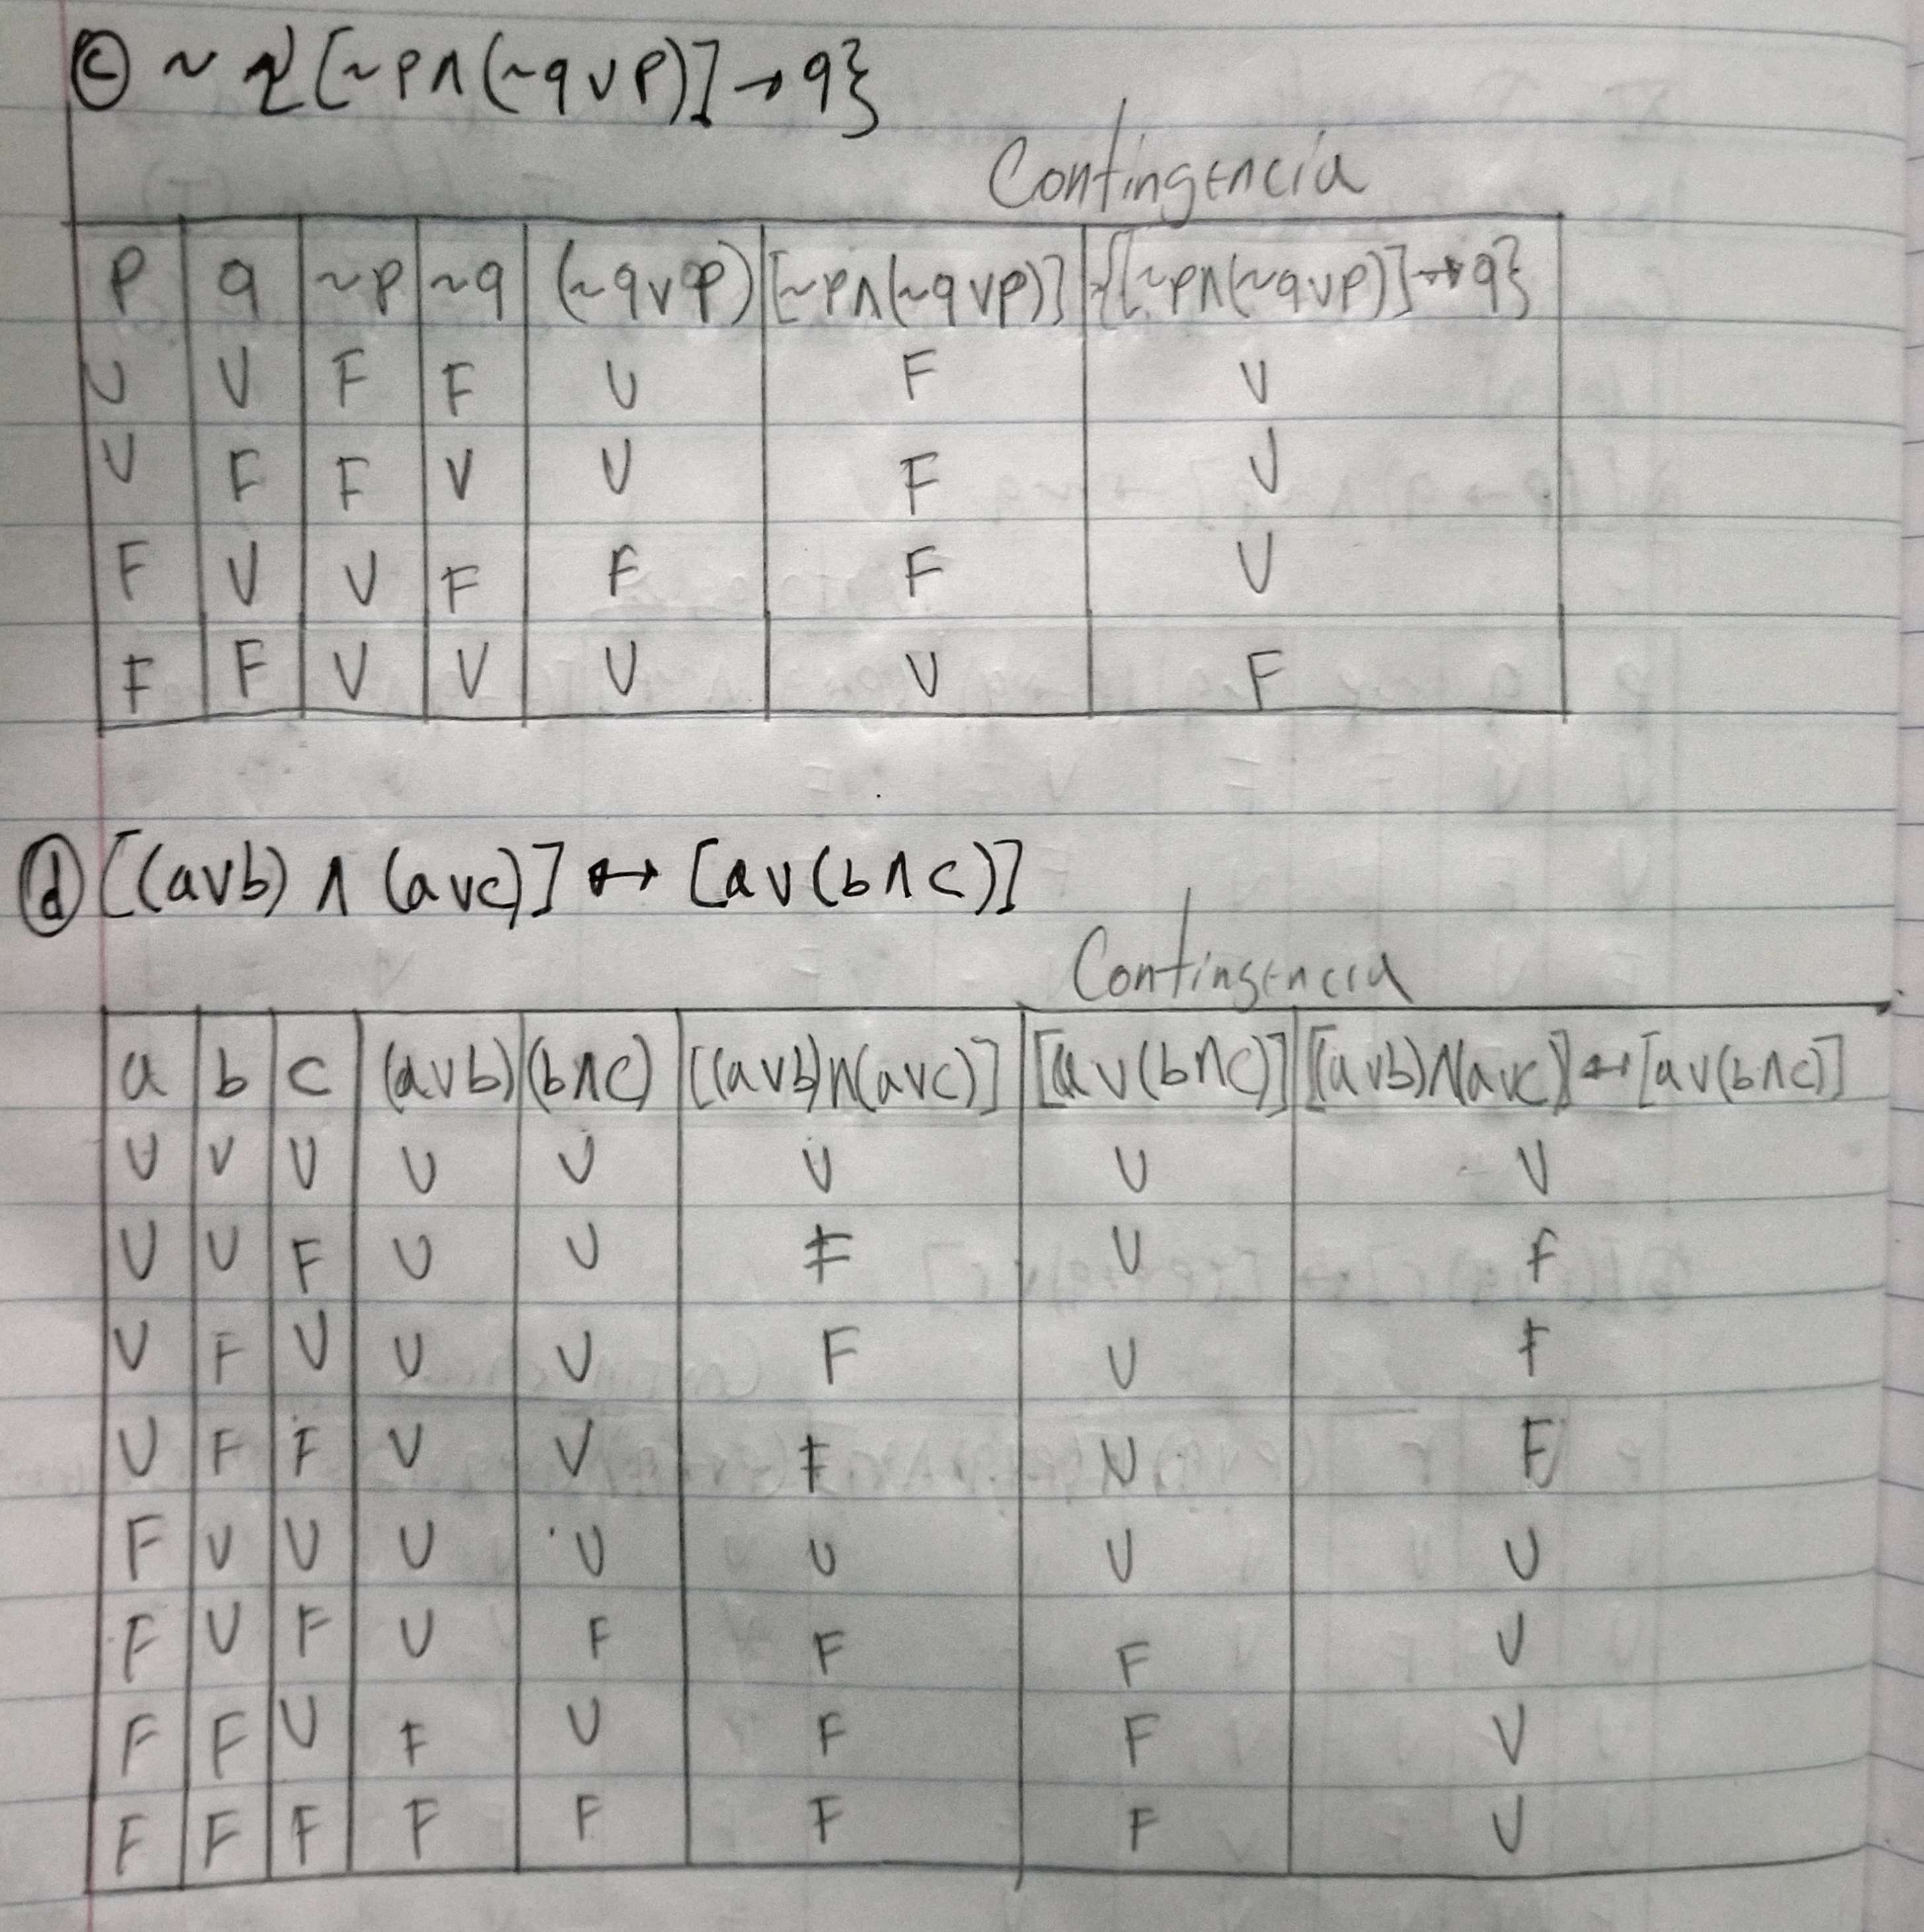 c ~ {[~p∧(~q∨p)]→q}
Contingencia
p q ~p ~q (~q∨p) [~p∧(~q∨p)] {[~p∧(~q∨p)]→q}
V V F F V F V
V F F V V F V
F V V F F F V
F F V V V V F
d [(a∨b) ∧ (a∨c)] ↔ [a∨(b∧c)]
Contingencia
a b c (a∨b) (b∧c) [(a∨b)∧(a∨c)] [a∨(b∧c)] [(a∨b)∧(a∨c)]↔[a∨(b∧c)]
V V V V V V V V
V V F V V F V F
V F V V V F V F
V F F V V F V F
F V V V V V V V
F V F V F F F V
F F V F V F F V
F F F F F F F V